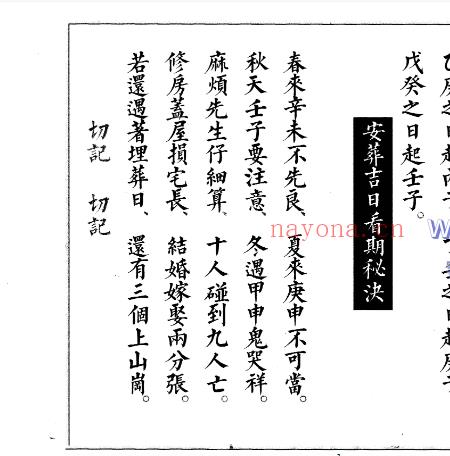 戊癸之日起壬子。
安葬吉日看期秘決
春來辛未不先良、夏來庚申不可當。
秋天壬子要注意、冬遇甲申鬼哭祥。
麻煩先生仔細算、十人碰到九人亡。
修房蓋屋損宅長、結婚嫁娶兩分張。
若還遇著埋葬日、還有三個上山崗。
切記 切記
nayona.cn